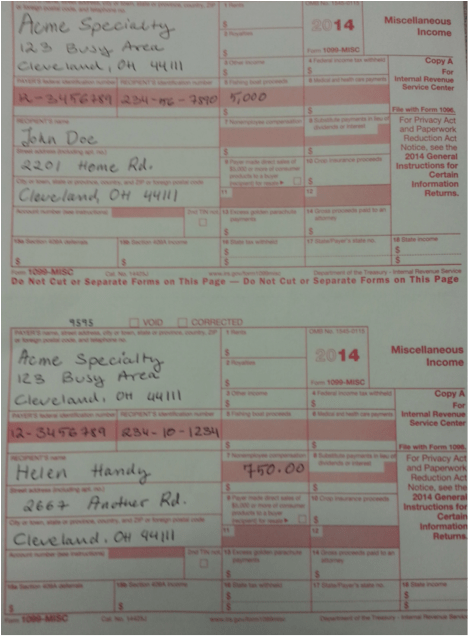 or foreign postal code, and telephone no.
Acme Specialty
123 Busy Area
Cleveland, OH 44111
1 Rents
$
2 Royalties
$
OMB No. 1545-0115
2014
Form 1099-MISC
Miscellaneous
Income
3 Other income
$
4 Federal income tax withheld
$
Copy A
For
Internal Revenue
Service Center
PAYER'S federal identification number
RECIPIENT'S identification number
5 Fishing boat proceeds
6 Medical and health care payments
12-3456789
5,000
$
$
File with Form 1096.
RECIPIENT'S name
John Doe
7 Nonemployee compensation
8 Substitute payments in lieu of
dividends or interest
$
$
For Privacy Act
and Paperwork
Reduction Act
Notice, see the
2014 General
Instructions for
Certain
Information
Returns.
Street address (including apt. no.)
2201 Home Rd.
9 Payer made direct sales of
$5,000 or more of consumer
products to a buyer
(recipient) for resale
10 Crop insurance proceeds
$
City or town, state or province, country, and ZIP or foreign postal code
Cleveland, OH 44111
11
12
Account number (see instructions)
2nd TIN not.
13 Excess golden parachute
payments
$
14 Gross proceeds paid to an
attorney
$
15a Section 409A deferrals
$
15b Section 409A income
$
16 State tax withheld
$
$
17 State/Payer's state no.
18 State income
$
$
Form 1099-MISC
Cat. No. 14425J
www.irs.gov/form1099misc
Department of the Treasury - Internal Revenue Service
Do Not Cut or Separate Forms on This Page — Do Not Cut or Separate Forms on This Page
9595
VOID
CORRECTED
PAYER'S name, street address, city or town, state or province, country, ZIP
or foreign postal code, and telephone no.
Acme Specialty
123 Busy Area
Cleveland, OH 44111
1 Rents
$
2 Royalties
$
OMB No. 1545-0115
2014
Form 1099-MISC
Miscellaneous
Income
3 Other income
$
4 Federal income tax withheld
$
Copy A
For
Internal Revenue
Service Center
PAYER'S federal identification number
RECIPIENT'S identification number
5 Fishing boat proceeds
6 Medical and health care payments
12-3456789
234-10-1234
$
$
File with Form 1096.
RECIPIENT'S name
Helen Handy
7 Nonemployee compensation
750.00
8 Substitute payments in lieu of
dividends or interest
$
$
For Privacy Act
and Paperwork
Reduction Act
Notice, see the
2014 General
Instructions for
Certain
Information
Returns.
Street address (including apt. no.)
2667 Another Rd.
9 Payer made direct sales of
$5,000 or more of consumer
products to a buyer
(recipient) for resale
10 Crop insurance proceeds
$
City or town, state or province, country, and ZIP or foreign postal code
Cleveland, OH 44111
11
12
Account number (see instructions)
2nd TIN not.
13 Excess golden parachute
payments
$
14 Gross proceeds paid to an
attorney
$
15a Section 409A deferrals
$
15b Section 409A income
$
16 State tax withheld
$
$
17 State/Payer's state no.
18 State income
$
$
Form 1099-MISC
Cat. No. 14425J
www.irs.gov/form1099misc
Department of the Treasury - Internal Revenue Service